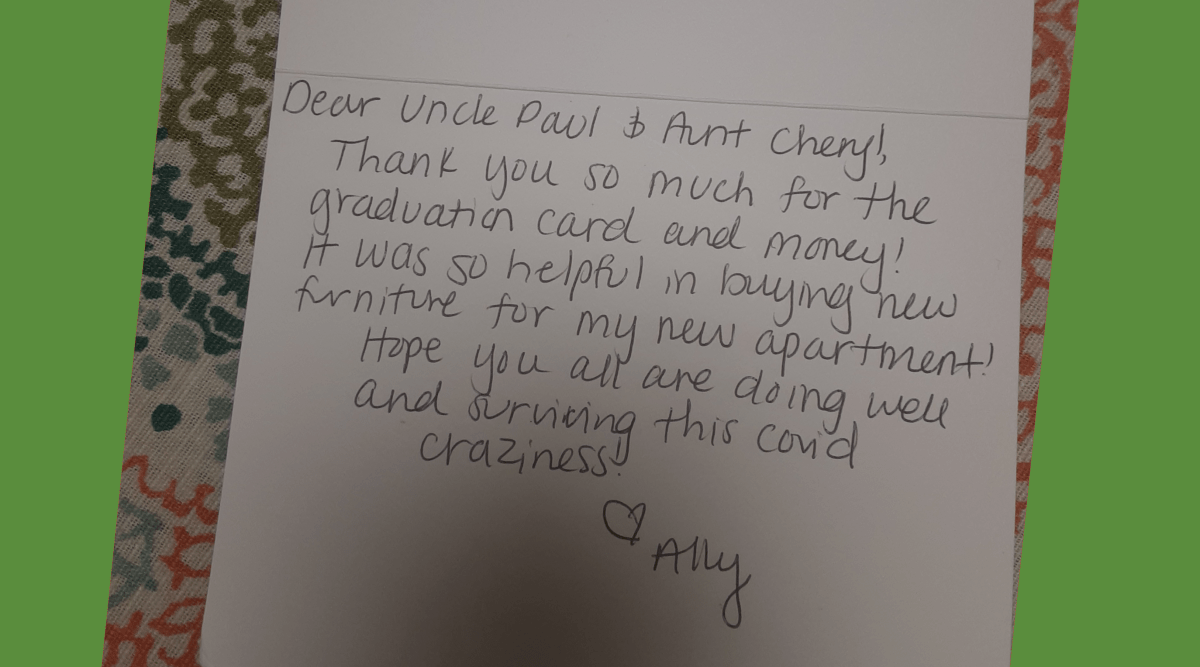 Dear Uncle Paul & Aunt Cheryl,
Thank you so much for the
graduation card and money!
It was so helpful in buying new
furniture for my new apartment!
Hope you all are doing well
and surviving this covid
craziness!
♡ Ally